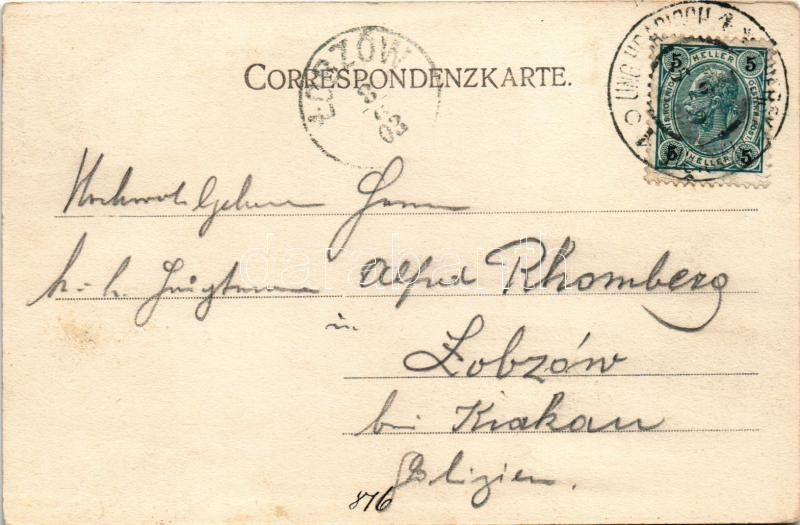 ŁOBZÓW
03
CORRESPONDENZKARTE.
UNG. HRADISCH
5 HELLER 5
5 HELLER 5
Hochwohlgeboren Herrn
k. k. Hauptmann Alfred Rhomberg
in
Łobzów
bei Krakau
Galizien.
876
darabanth